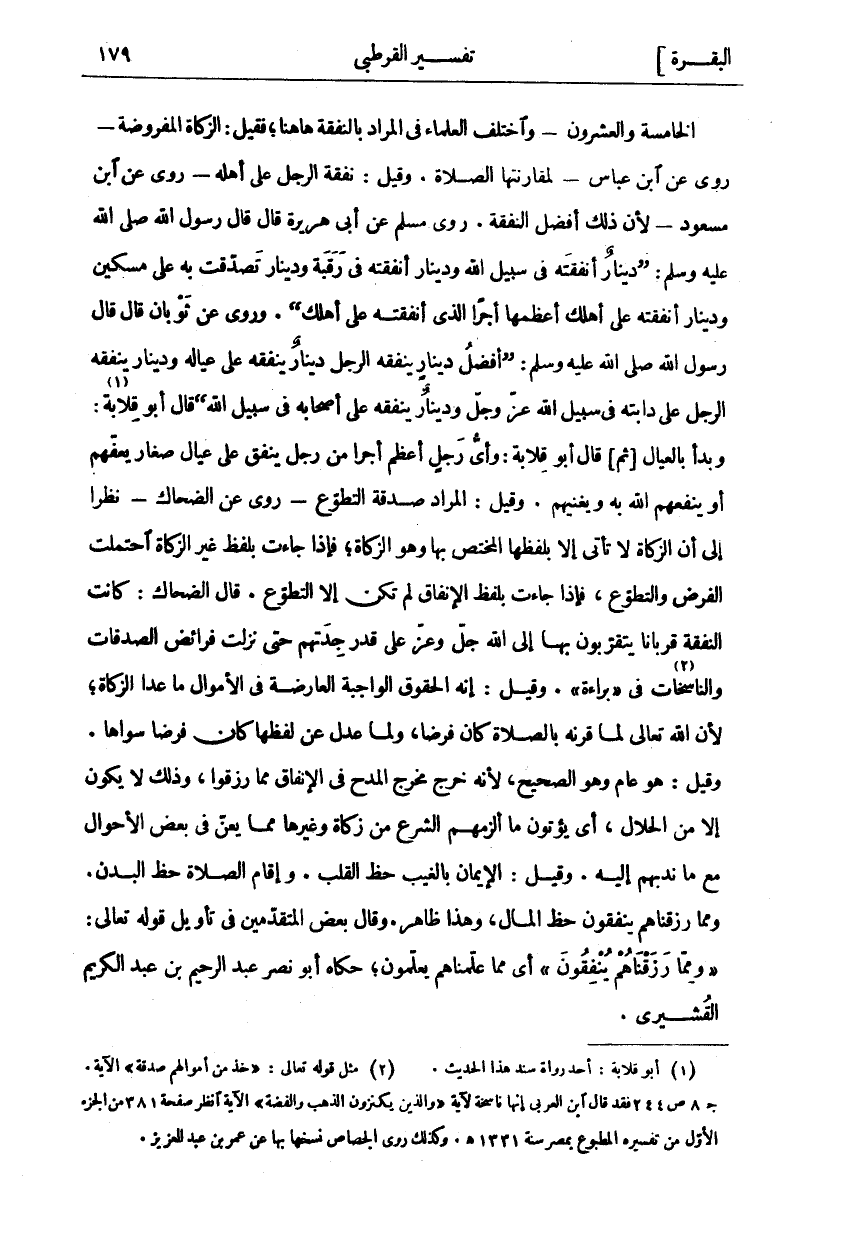 البقرة ] تفسير القرطبى ١٧٩
الخامسة والعشرون — وٱختلف العلماء فى المراد بالنفقة هاهنا؛ فقيل: الزكاة المفروضة —
روى عن ٱبن عباس — لمقارنتها الصلاة . وقيل : نفقة الرجل على أهله — روى عن ٱبن
مسعود — لأن ذلك أفضل النفقة . روى مسلم عن أبى هريرة قال قال رسول الله صلى الله
عليه وسلم : ”دينارٌ أنفقتَه فى سبيل الله ودينار أنفقته فى رَقَبة ودينار تَصدّقت به على مسكين
ودينار أنفقته على أهلك أعظمها أجرًا الذى أنفقتـه على أهلك“ . وروى عن ثَوْبان قال قال
رسول الله صلى الله عليه وسلم : ”أفضلُ دينارٍ ينفقه الرجل دينارٌ ينفقه على عياله ودينار ينفقه
الرجل على دابته فى سبيل الله عزّ وجلّ ودينارٌ ينفقه على أصحابه فى سبيل الله“ قال أبو قِلابة(١) :
وبدأ بالعيال [ثم] قال أبو قِلابة : وأىُّ رَجلٍ أعظم أجرا من رجل ينفق على عيال صغار يعفّهم
أو ينفعهم الله به ويغنيهم . وقيل : المراد صدقة التطوّع — روى عن الضحاك — نظرا
إلى أن الزكاة لا تأتى إلا بلفظها المختص بها وهو الزكاة؛ فإذا جاءت بلفظ غير الزكاة ٱحتملت
الفرض والتطوّع ، فإذا جاءت بلفظ الإنفاق لم تكن إلا التطوّع . قال الضحاك : كانت
النفقة قربانا يتقرّبون بهـا إلى الله جلّ وعزّ على قدر جِدَتهم حتى نزلت فرائض الصدقات
والناسخات(٢) فى «براءة» . وقيـل : إنه الحقوق الواجبة العارضـة فى الأموال ما عدا الزكاة؛
لأن الله تعالى لمـا قرنه بالصـلاة كان فرضا، ولمـا عدل عن لفظها كان فرضا سواها .
وقيل : هو عام وهو الصحيح، لأنه خرج مخرج المدح فى الإنفاق مما رزقوا ، وذلك لا يكون
إلا من الحلال ، أى يؤتون ما ألزمهـم الشرع من زكاة وغيرها ممـا يعنّ فى بعض الأحوال
مع ما ندبهم إليـه . وقيـل : الإيمان بالغيب حظ القلب . وإقام الصلاة حظ البـدن.
ومما رزقناهم ينفقون حظ المـال، وهذا ظاهر. وقال بعض المتقدّمين فى تأويل قوله تعالى:
« ومِمّا رَزَقْنَاهُمْ يُنْفِقُونَ » أى مما علّمناهم يعلّمون؛ حكاه أبو نصر عبد الرحيم بن عبد الكريم
القُشـــيرى .
(١) أبو قلابة : أحد رواة سند هذا الحديث . (٢) مثل قوله تعالى : «خذ من أموالهم صدقة» الآية .
جـ ٨ ص ٢٤٤ فقد قال ٱبن العربى إنها ناسخة لآية «والذين يكنزون الذهب والفضة» الآية ٱنظر صفحة ٣٨١ من الجزء
الأوّل من تفسيره المطبوع بمصر سنة ١٣٣١ هـ . وكذلك روى الجصاص نسخها بها عن عمر بن عبد العزيز .